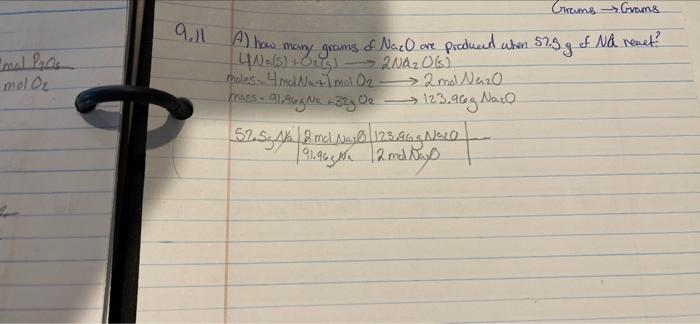 Grams → Grams
mol P2O5
mol O2
9.11 A) how many grams of Na2O are produced when 57.5 g of Na react?
4Na(s) + O2(g) → 2Na2O(s)
moles - 4 mol Na + 1 mol O2 → 2 mol Na2O
mass - 91.96g Na + 32g O2 → 123.96g Na2O
57.5g Na | 2 mol Na2O | 123.96g Na2O
91.96g Na | 2 mol Na2O